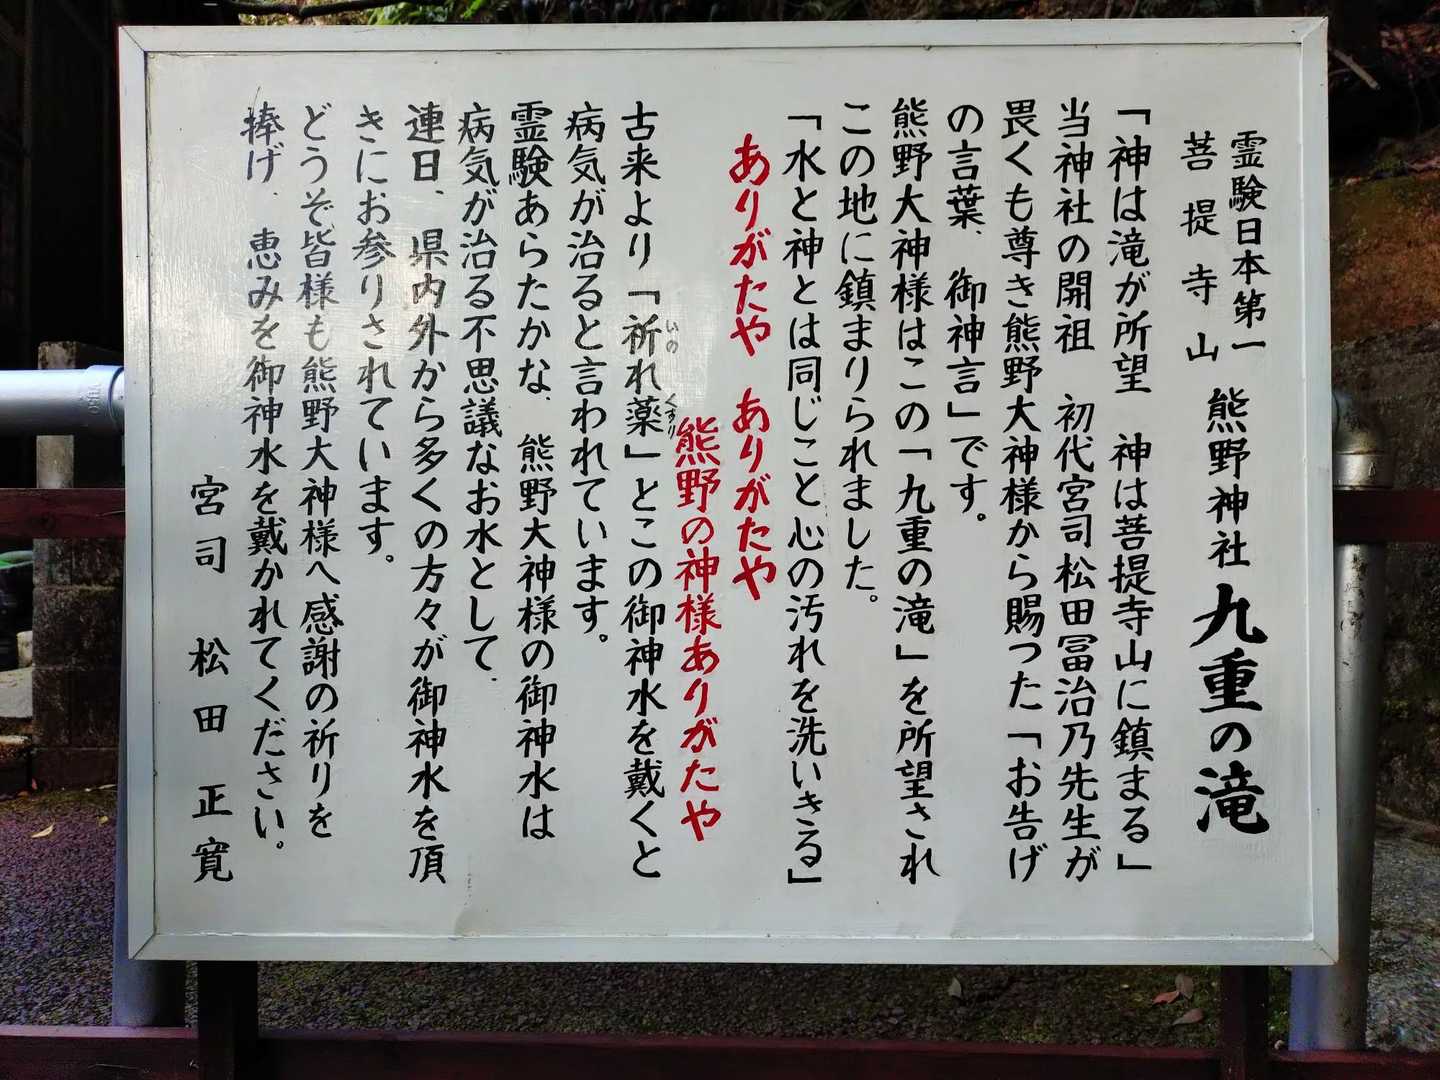 霊験日本第一
菩提寺山
熊野神社
九重の滝
「神は滝が所望　神は菩提寺山に鎮まる」
当神社の開祖　初代宮司松田冨治乃先生が
畏くも尊き熊野大神様から賜った「お告げ
の言葉、御神言」です。
熊野大神様はこの「九重の滝」を所望され
この地に鎮まりられました。
「水と神とは同じこと心の汚れを洗いきる」
ありがたや　ありがたや
熊野の神様ありがたや
古来より「祈れ薬」とこの御神水を戴くと
いの
くすり
病気が治ると言われています。
霊験あらたかな、熊野大神様の御神水は
病気が治る不思議なお水として、
連日、県内外から多くの方々が御神水を頂
きにお参りされています。
どうぞ皆様も熊野大神様へ感謝の祈りを
捧げ、恵みを御神水を戴かれてください。
宮司　松田正寛